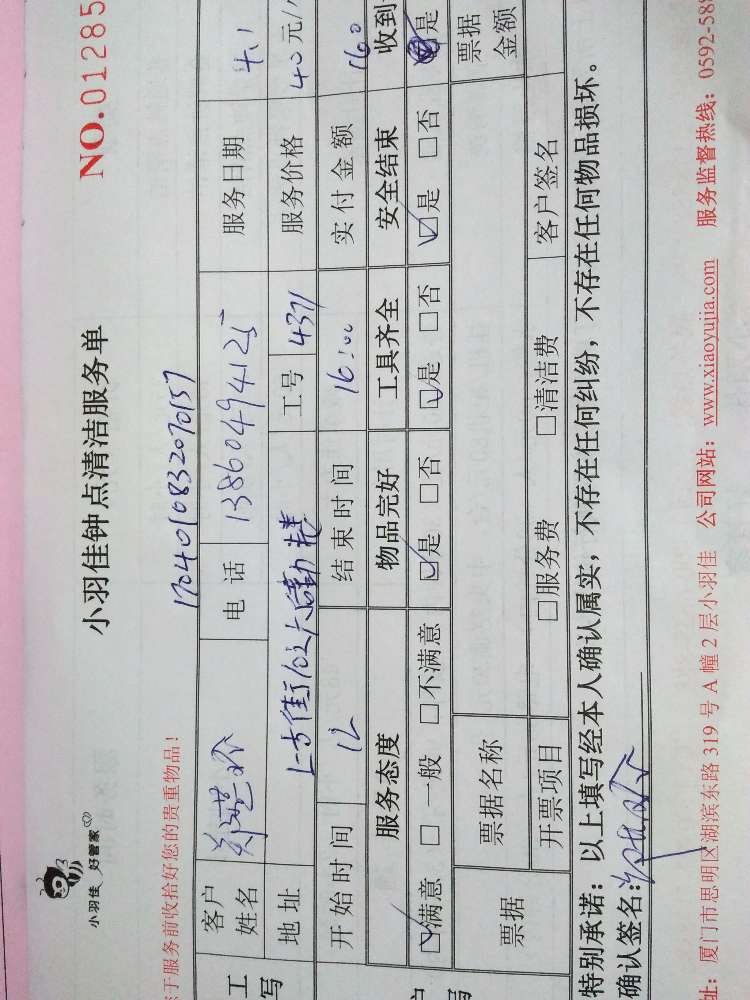 小羽佳 好管家
小羽佳钟点清洁服务单
NO.01285
1704010832070157
于服务前收拾好您的贵重物品！
客户姓名 电话 13860494125 服务日期 4.1
地址 工号 4371 服务价格 40元/
开始时间 12 结束时间 16:00 实付金额 160
服务态度 物品完好 工具齐全 安全结束 收到
☑满意 □一般 □不满意 ☑是 □否 ☑是 □否 ☑是 □否 是
票据 票据名称 票据金额
开票项目 □服务费 □清洁费 客户签名
特别承诺：以上填写经本人确认属实，不存在任何纠纷，不存在任何物品损坏。
确认签名：
址：厦门市思明区湖滨东路 319 号 A 幢 2 层小羽佳 公司网站：www.xiaoyujia.com 服务监督热线：0592-58